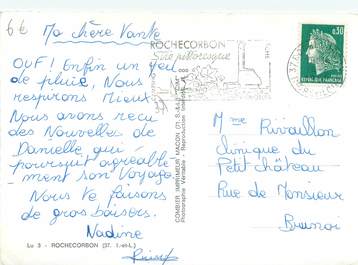 6€
Ma chère Vante
OUF! Enfin un peu
de pluie, Nous
respirons Mieux.
Nous avons reçu
des Nouvelles de
Danielle qui
poursuit agréable-
ment son Voyage.
Nous te faisons
de gros baisers.
Nadine
Lu 3 - ROCHECORBON (37. I.-et-L.)
COMBIER IMPRIMEUR MACON (71. S.-&-L.)
Photographie Véritable - Reproduction Interdite
ROCHECORBON
Site pittoresque
0,30
REPUBLIQUE FRANÇAISE
Mme Rivaillon
Clinique du
Petit château
Rue de Monsieur
Brunoi